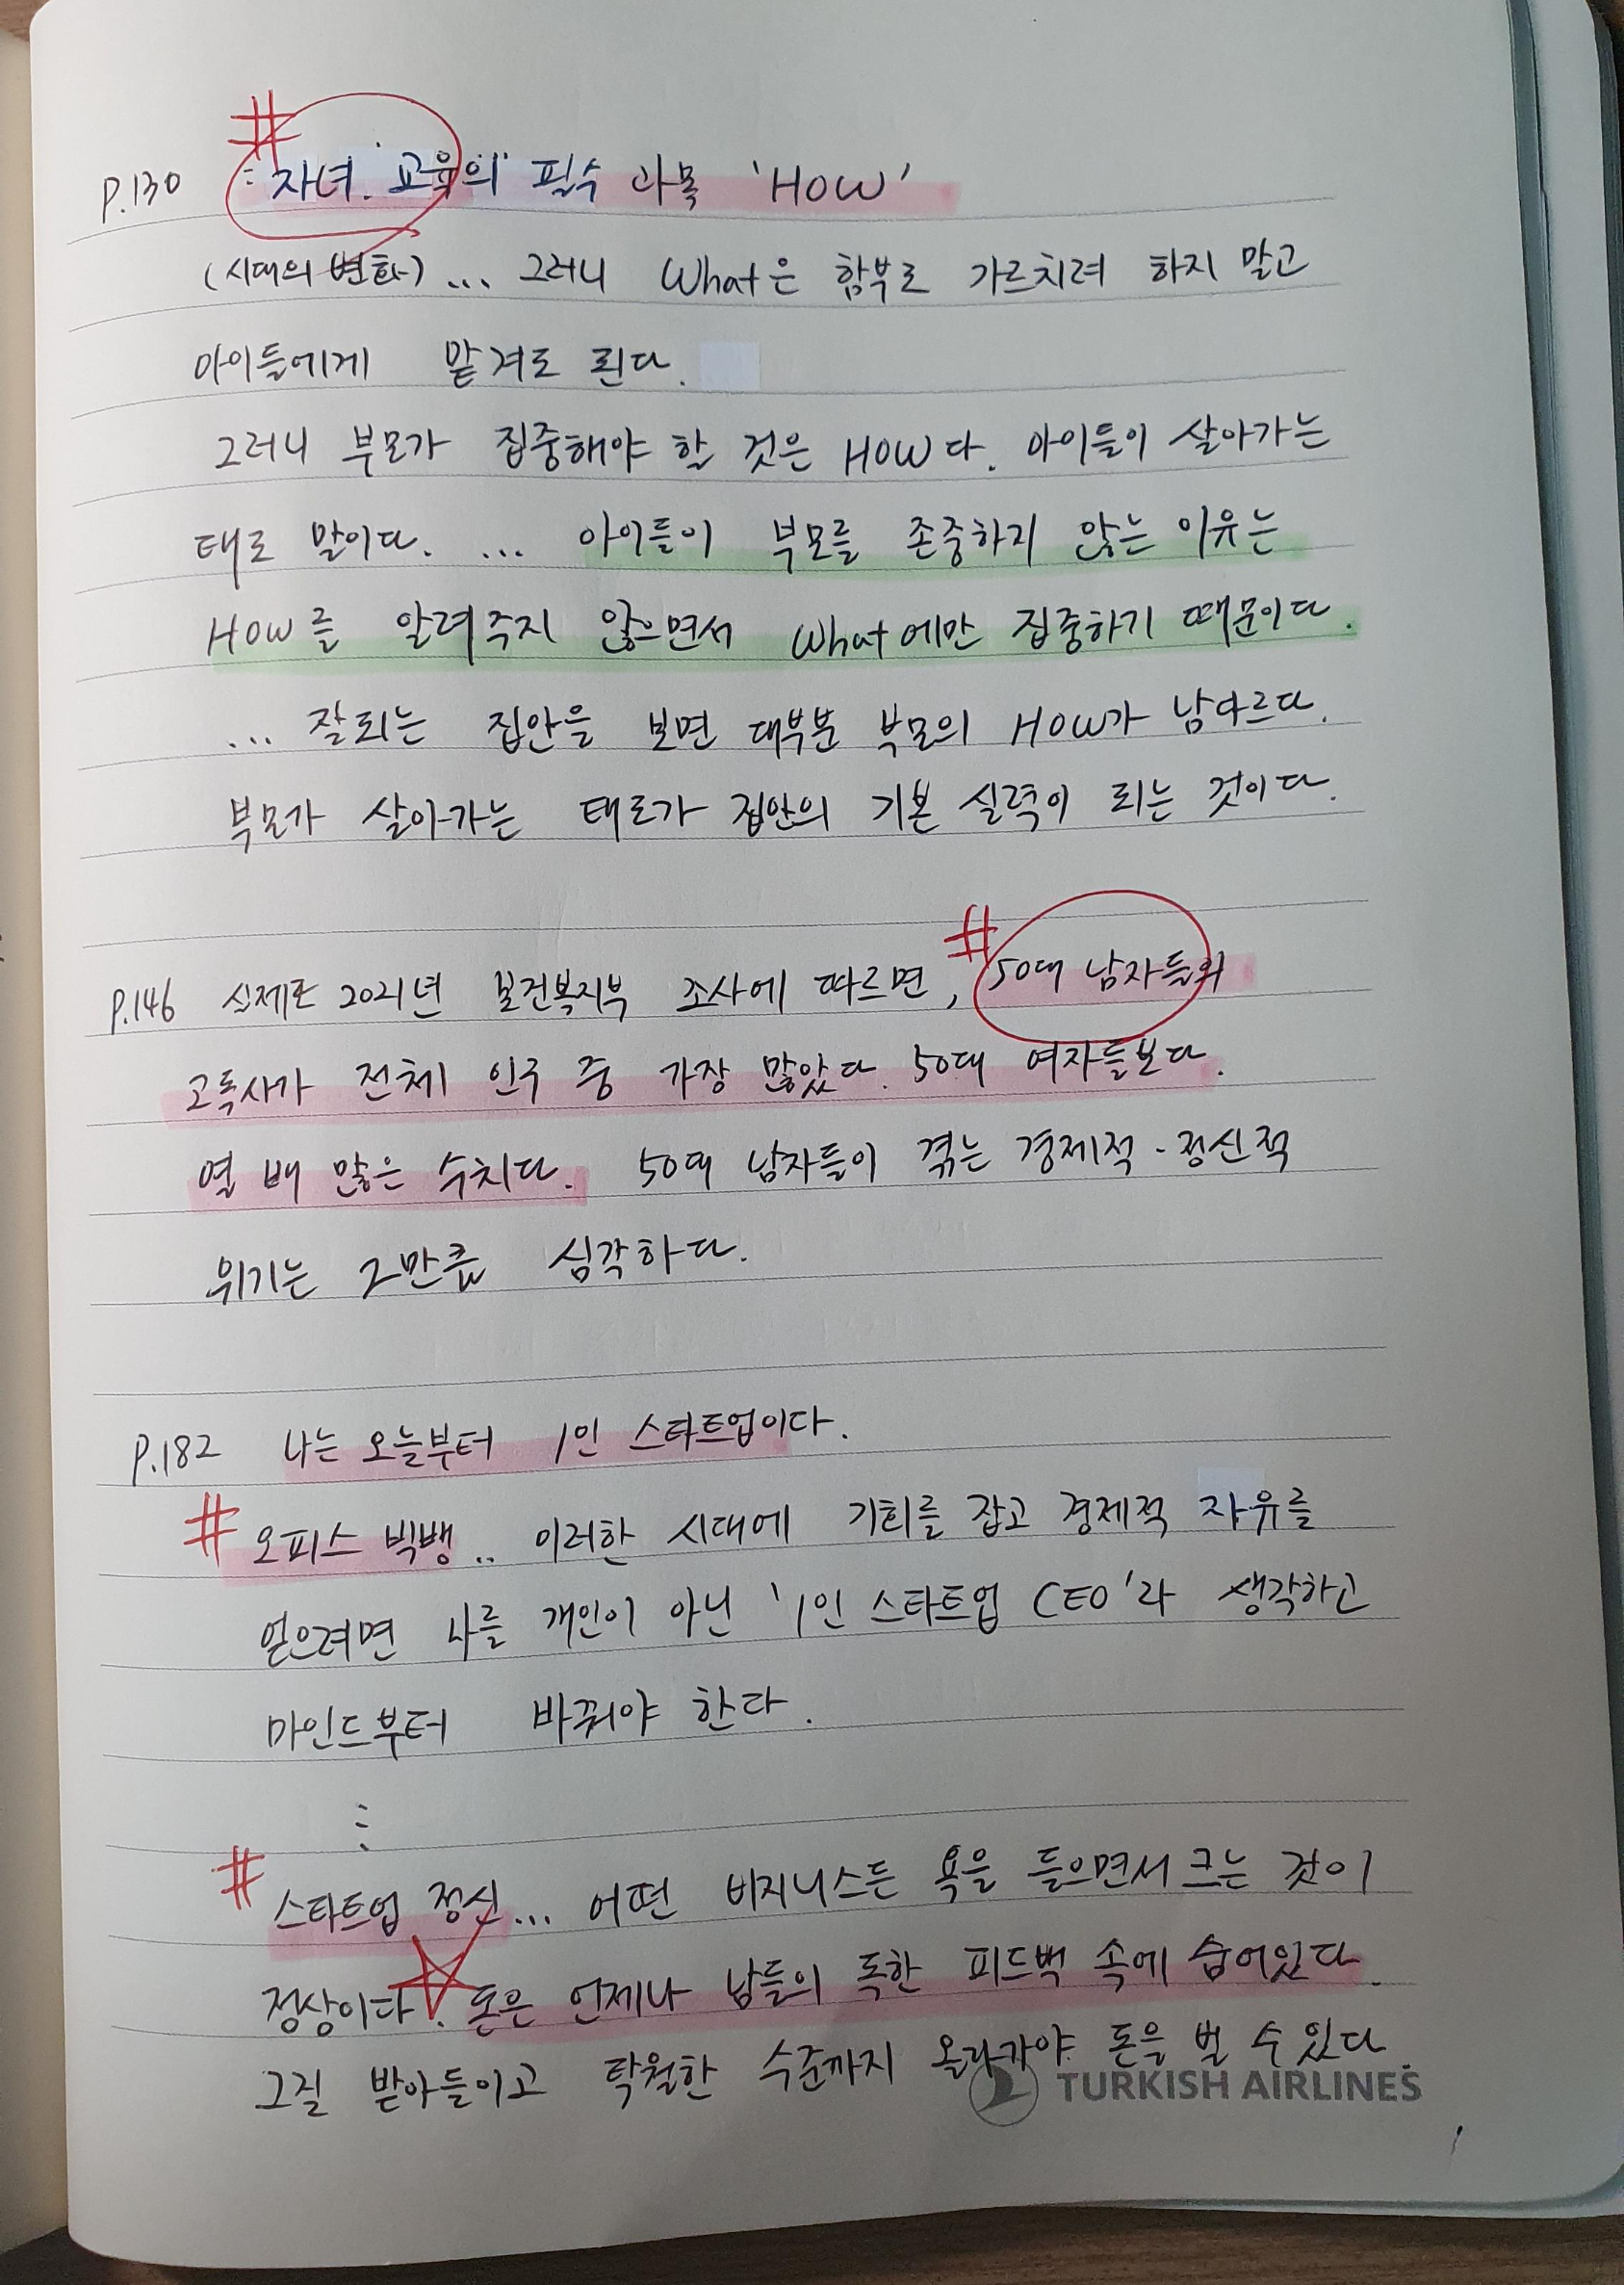 #
P.130 : 자녀 교육의 필수 과목 'HOW'
(시대의 변화) ... 그러니 What은 함부로 가르치려 하지 말고
아이들에게 맡겨도 된다.
그러니 부모가 집중해야 할 것은 HOW다. 아이들이 살아가는
태도 말이다. ... 아이들이 부모를 존중하지 않는 이유는
HOW를 알려주지 않으면서 What에만 집중하기 때문이다.
... 잘되는 집안을 보면 대부분 부모의 HOW가 남다르다.
부모가 살아가는 태도가 집안의 기본 실력이 되는 것이다.
P.146 실제로 2021년 보건복지부 조사에 따르면, #50대 남자들의
고독사가 전체 인구 중 가장 많았다. 50대 여자들보다.
열 배 많은 수치다. 50대 남자들이 겪는 경제적·정신적
위기는 그만큼 심각하다.
P.182 나는 오늘부터 1인 스타트업이다.
# 오피스 빅뱅.. 이러한 시대에 기회를 잡고 경제적 자유를
얻으려면 나를 개인이 아닌 '1인 스타트업 CEO'라 생각하고
마인드부터 바꿔야 한다.
⋮
# 스타트업 정신... 어떤 비지니스든 욕을 들으면서 크는 것이
정상이다. 돈은 언제나 남들의 독한 피드백 속에 숨어있다.
그걸 받아들이고 탁월한 수준까지 올라가야 돈을 벌 수 있다.
TURKISH AIRLINES